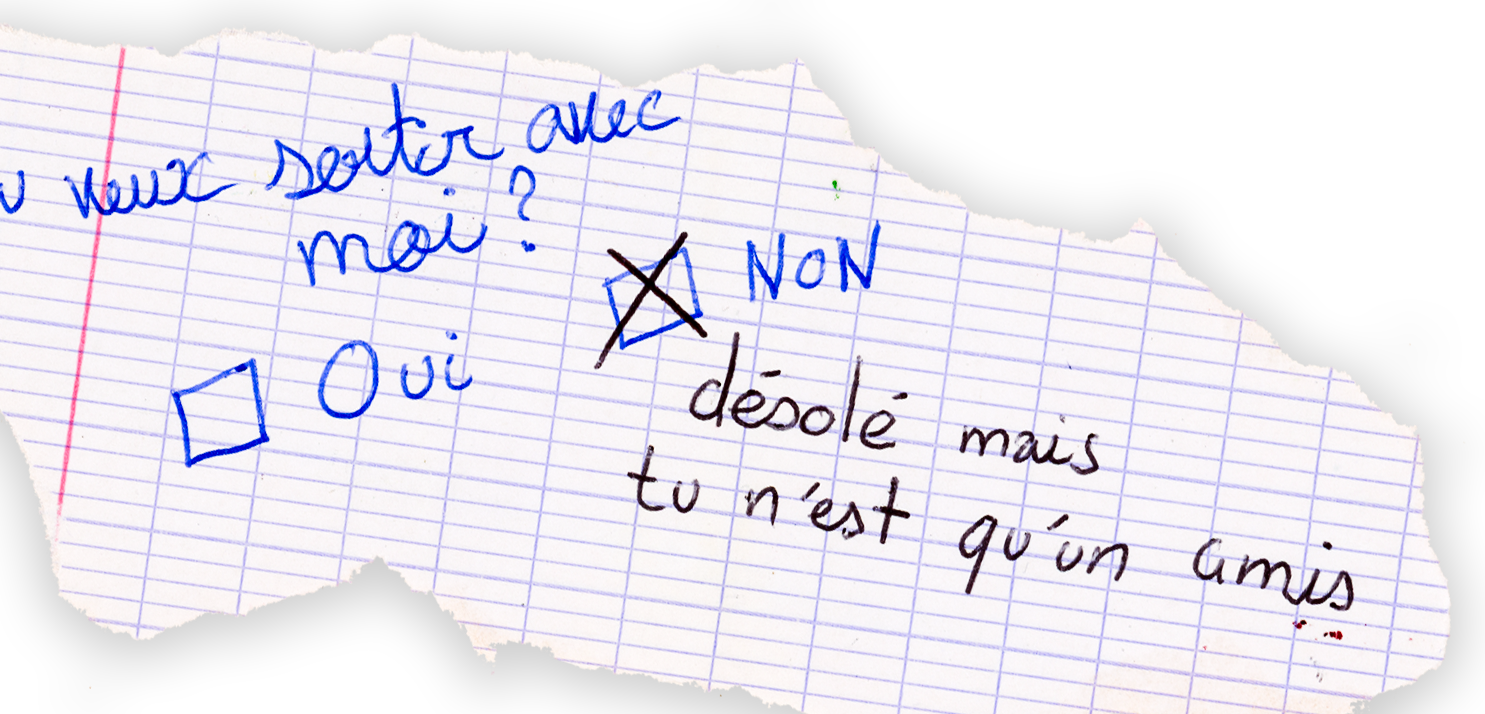 u veux sortir avec
moi ?
NON
Oui
désolé mais
tu n'est qu'un amis